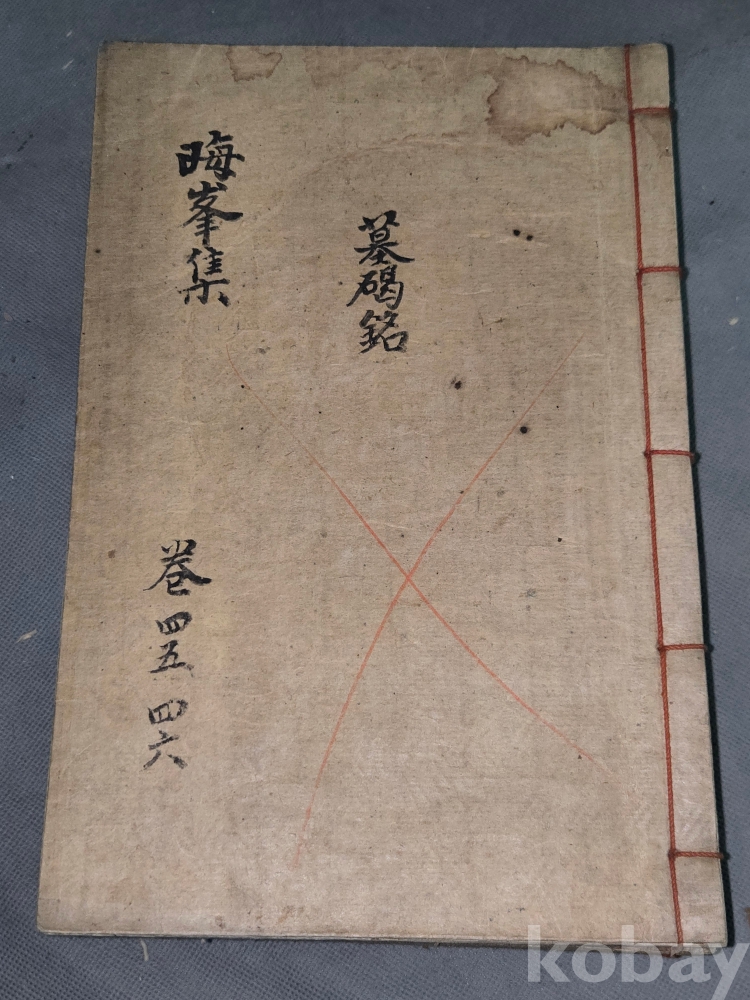 墓碣銘
晦峯集
巻四五 四六
kobay